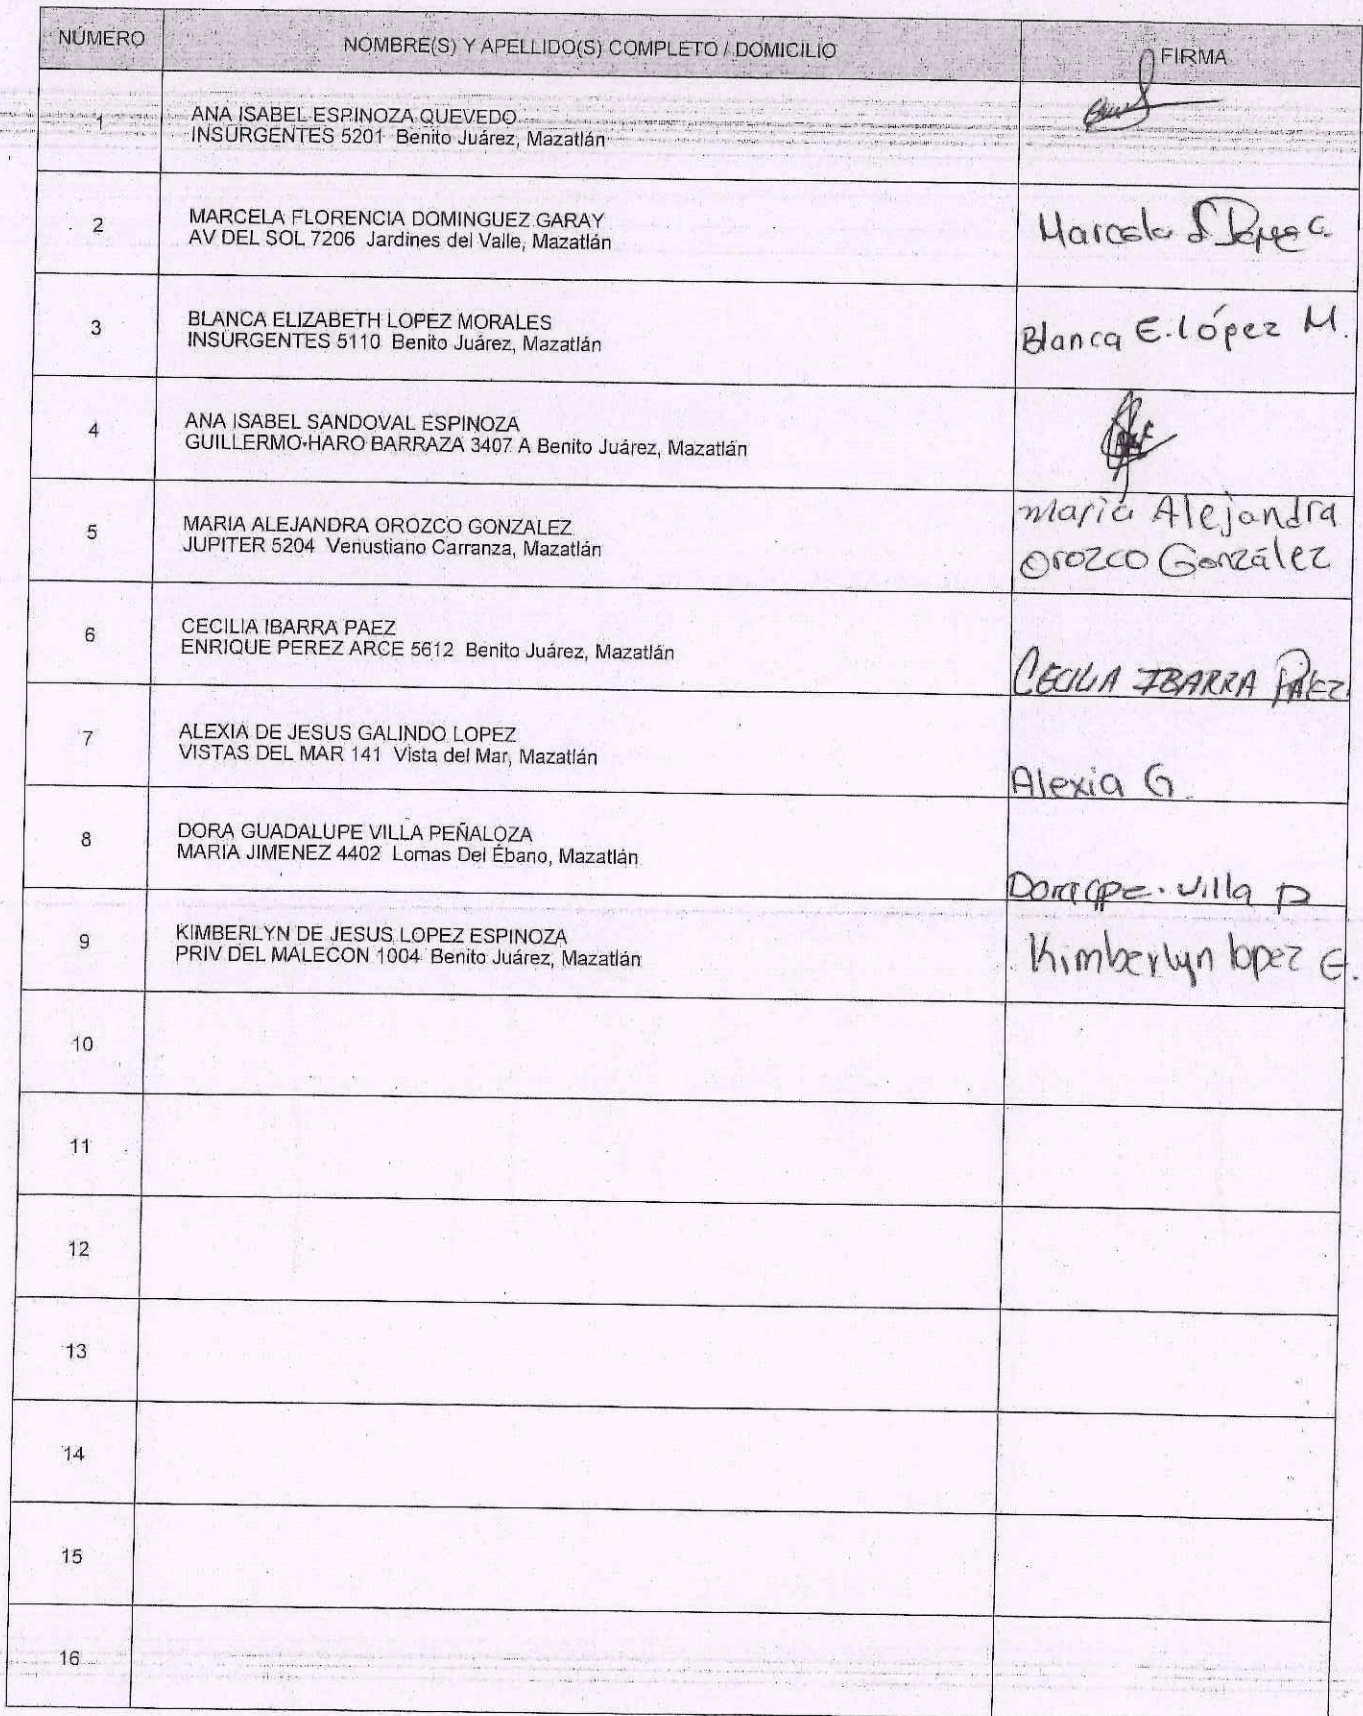 NÚMERO NOMBRE(S) Y APELLIDO(S) COMPLETO / DOMICILIO FIRMA
1 ANA ISABEL ESPINOZA QUEVEDO
INSURGENTES 5201 Benito Juárez, Mazatlán
2 MARCELA FLORENCIA DOMINGUEZ GARAY
AV DEL SOL 7206 Jardines del Valle, Mazatlán
Marcela
3 BLANCA ELIZABETH LOPEZ MORALES
INSURGENTES 5110 Benito Juárez, Mazatlán
Blanca E. López M.
4 ANA ISABEL SANDOVAL ESPINOZA
GUILLERMO HARO BARRAZA 3407 A Benito Juárez, Mazatlán
5 MARIA ALEJANDRA OROZCO GONZALEZ
JUPITER 5204 Venustiano Carranza, Mazatlán
María Alejandra
Orozco González
6 CECILIA IBARRA PAEZ
ENRIQUE PEREZ ARCE 5612 Benito Juárez, Mazatlán
CECILIA IBARRA PAEZ
7 ALEXIA DE JESUS GALINDO LOPEZ
VISTAS DEL MAR 141 Vista del Mar, Mazatlán
Alexia G.
8 DORA GUADALUPE VILLA PEÑALOZA
MARIA JIMENEZ 4402 Lomas Del Ébano, Mazatlán
Dora Gpe. Villa P
9 KIMBERLYN DE JESUS LOPEZ ESPINOZA
PRIV DEL MALECON 1004 Benito Juárez, Mazatlán
Kimberlyn lopez E.
10
11
12
13
14
15
16